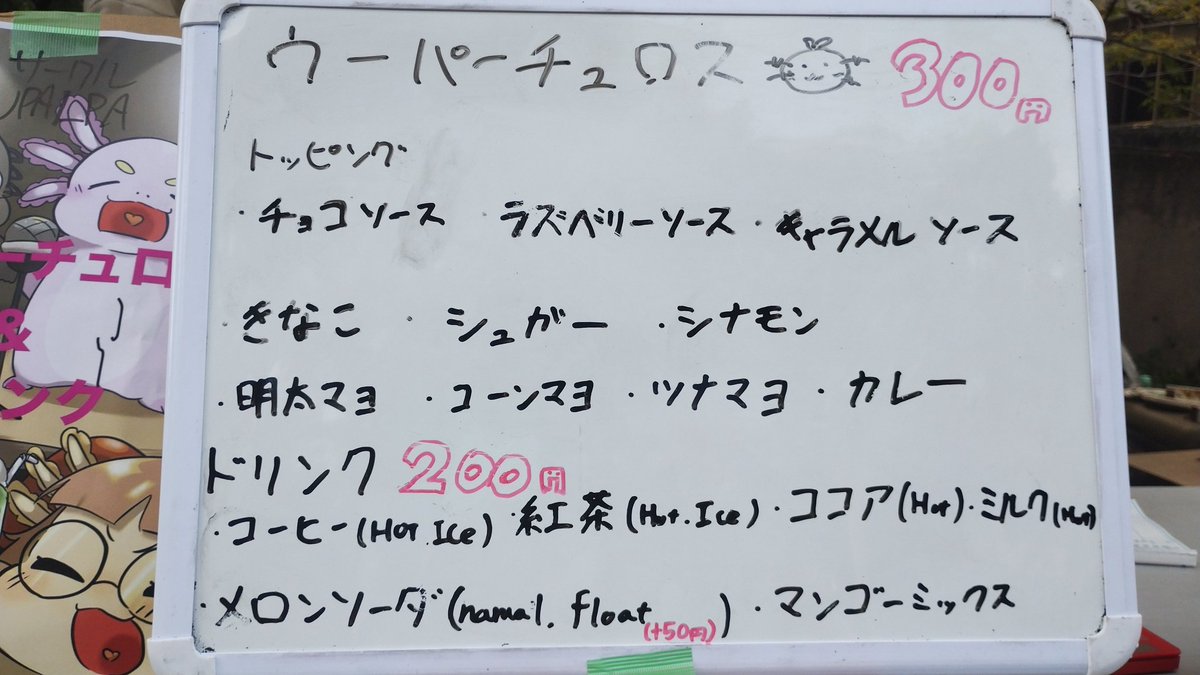 サークル
UPARPA
ーチュロ
&
ンク
ウーパーチュロス 300円
トッピング
・チョコソース ・ラズベリーソース ・キャラメルソース
・きなこ ・シュガー ・シナモン
・明太マヨ ・コーンマヨ ・ツナマヨ ・カレー
ドリンク 200円
・コーヒー(Hot.Ice) ・紅茶(Hot.Ice) ・ココア(Hot) ・ミルク(Hot)
・メロンソーダ(namal. float(+50円)) ・マンゴーミックス